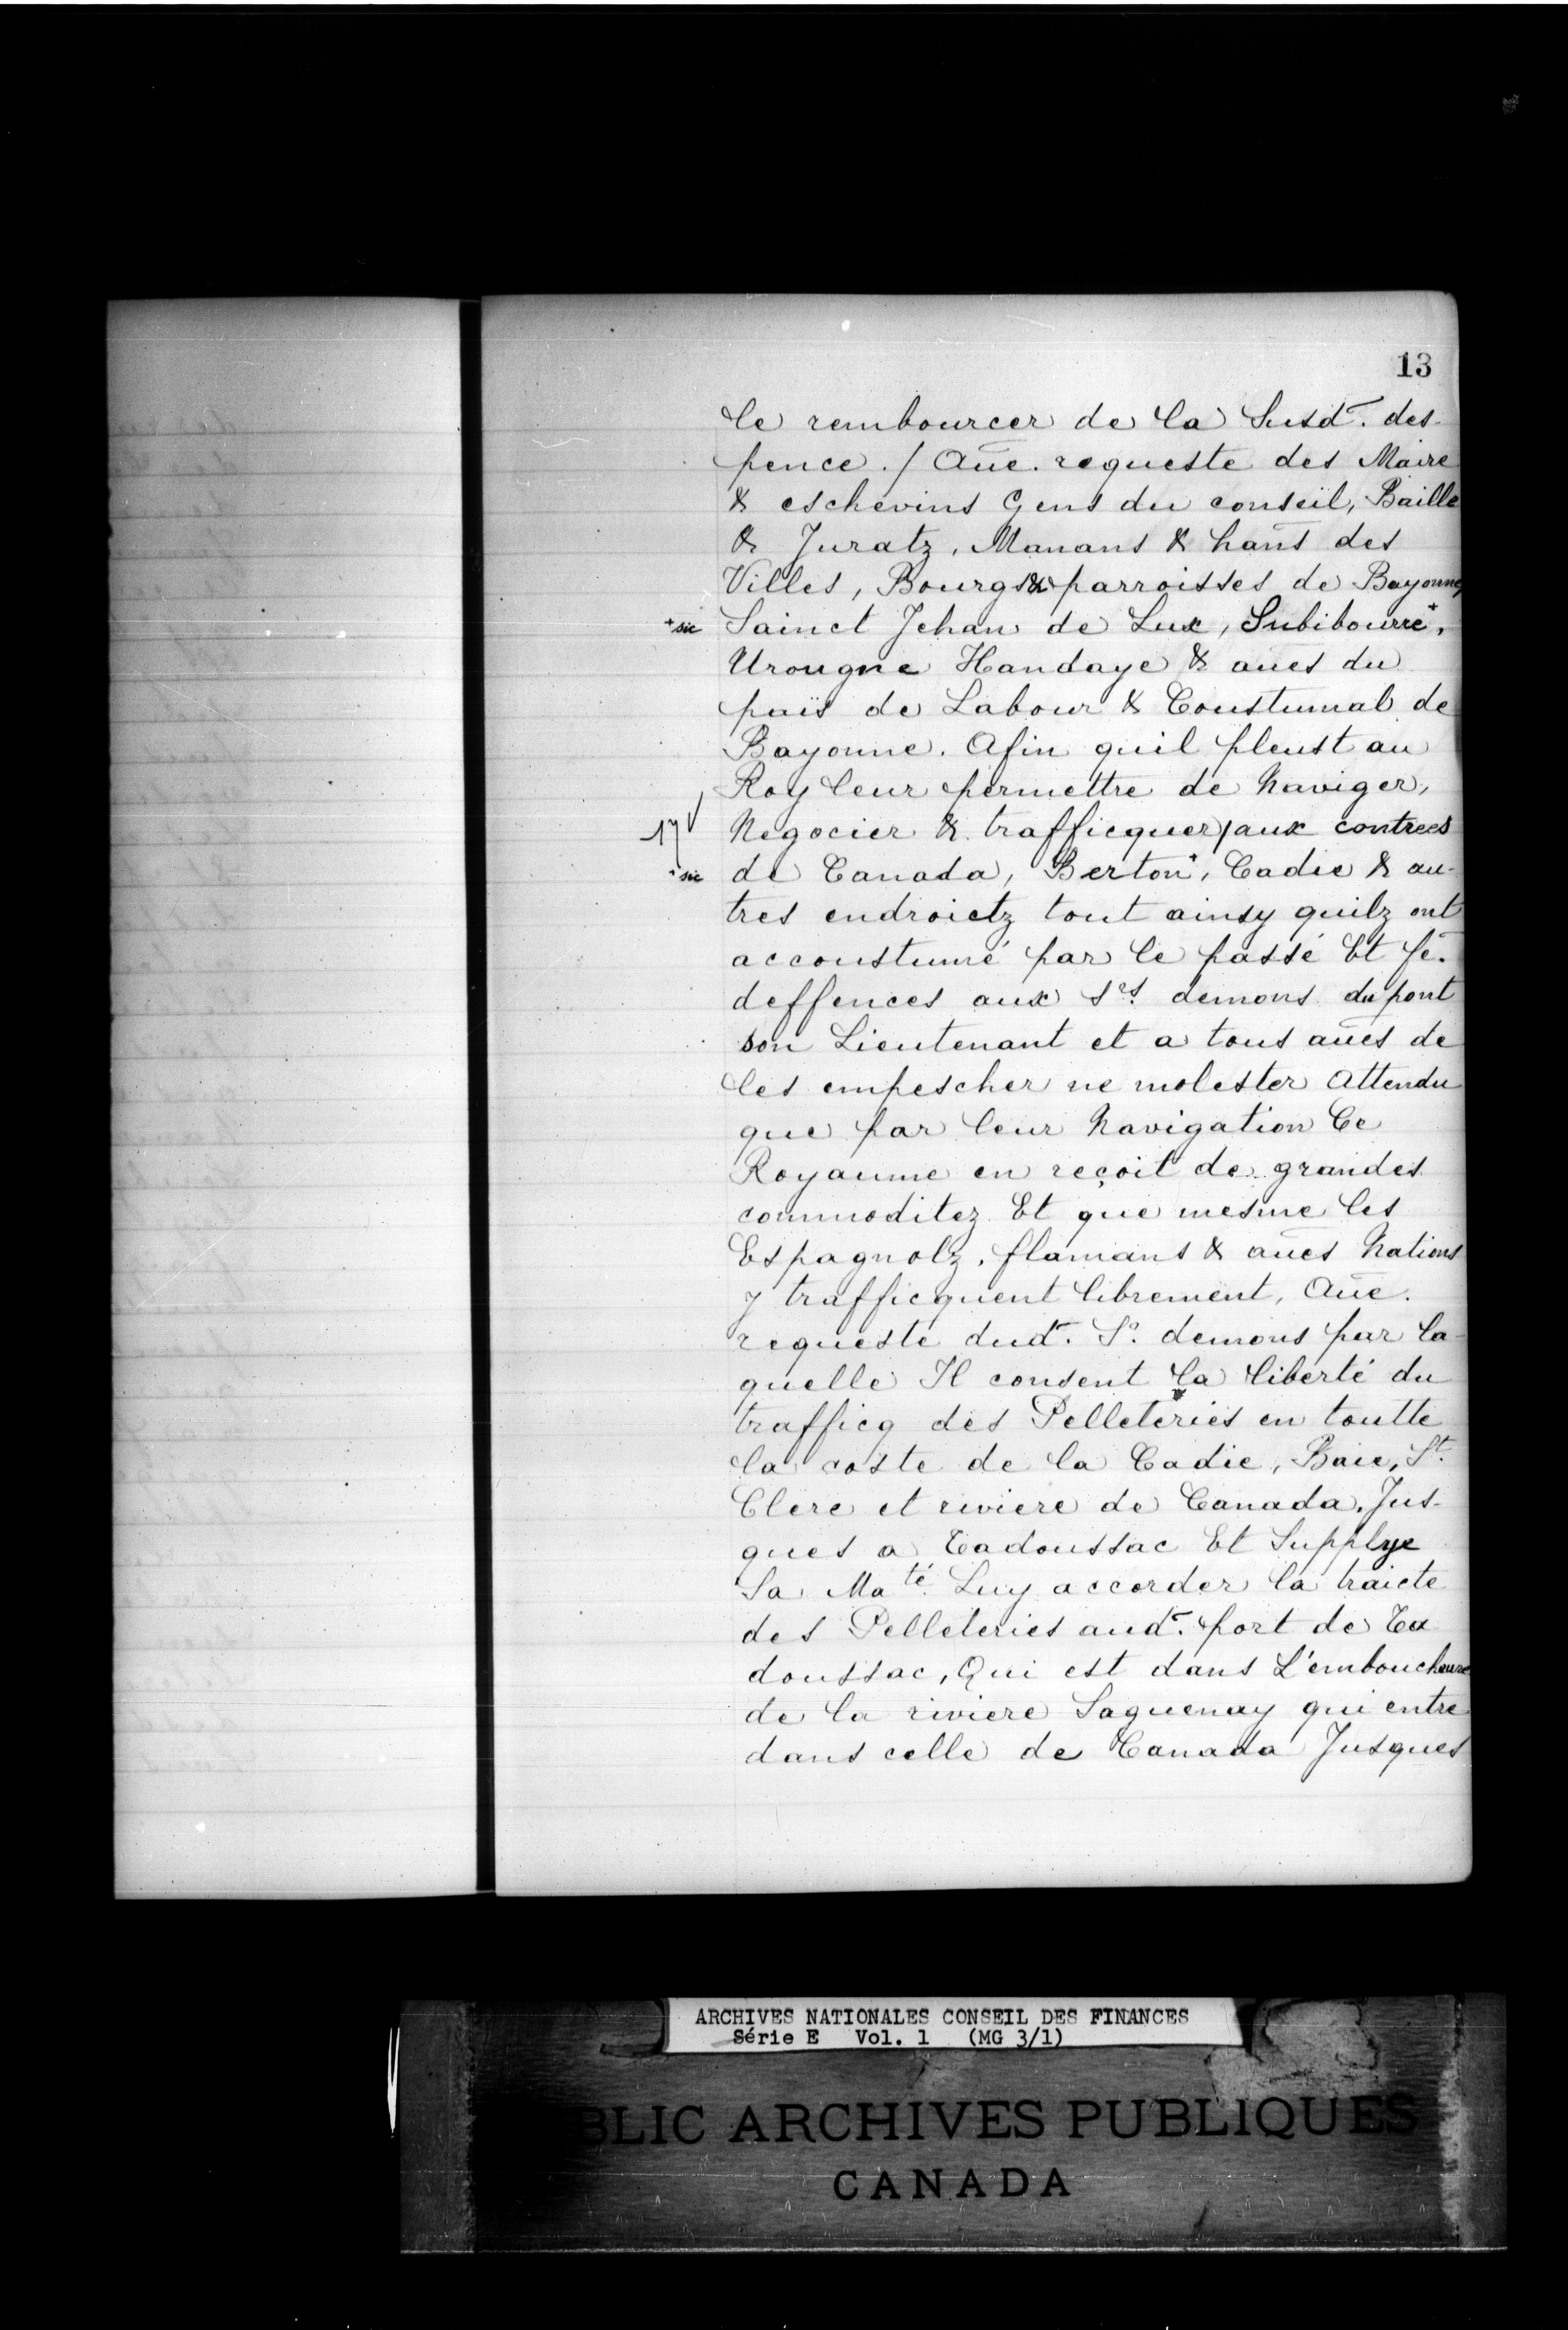 13
le rembourcer de la Susd. des-
pence. / Aūe. requeste des Maire
& eschevins Gens du conseil, Baille
& Juratz, Manans & han̄s des
Villes, Bourgs & parroisses de Bayonne,
+ sic Sainct Jehan de Lux, Subibourre+,
Urougne Handaye & aūes du
païs de Labour & Coustumal de
Bayonne. Afin quil pleust au
Roy leur permettre de Naviger,
17 Negocier & trafficquer / aux contrees
+ sic de Canada, Berton+, Cadie & au-
tres endroictz tout ainsy quilz ont
accoustumé par le passé Et fē.
deffences aux srs. demons du pont
son Lieutenant et a tous aūes de
les empescher ne molester Attendu
que par leur Navigation Ce
Royaume en reçoit de grandes
commoditez Et que mesme les
Espagnolz, flamans & aūes Nations
y trafficquent librement, Aūe.
requeste dud. Sr. demons par la-
quelle Il consent la liberté du
trafficq des Pelleteries en toutte
la coste de la Cadie, Baie, St.
Clere et riviere de Canada. Jus-
ques a Tadoussac Et Supplye
Sa Maté. Luy accorder la traicte
des Pelleteries aud. port de Ta
doussac, Qui est dans L'emboucheure
de la riviere Saguenay qui entre
dans celle de Canada Jusques
ARCHIVES NATIONALES CONSEIL DES FINANCES
Série E Vol. 1 (MG 3/1)
BLIC ARCHIVES PUBLIQUES
CANADA